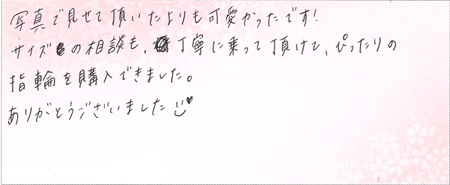 写真で見せて頂いたよりも可愛かったです!
サイズの相談も、丁寧に乗って頂けて、ぴったりの
指輪を購入できました。
ありがとうございました